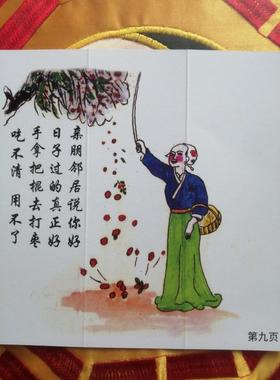 亲朋邻居说你好
日子过的真正好
手拿把棍去打枣
吃不清 用不了
第九页